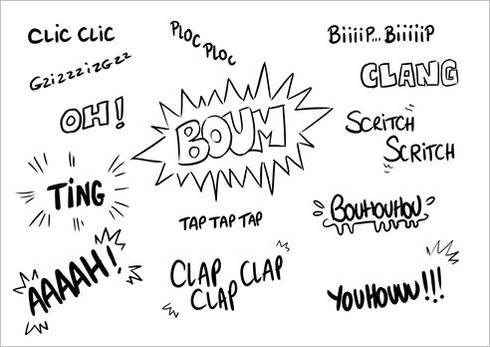 CLiC CLiC
PLOC
PLOC
BiiiiP... BiiiiiiP
GziZZZizGzz
CLANG
OH!
BOUM
SCRiTCH
SCRiTCH
TiNG
TAP TAP TAP
BOUHOUHOU
AAAAH!
CLAP CLAP
CLAP
YOUHOUUU!!!